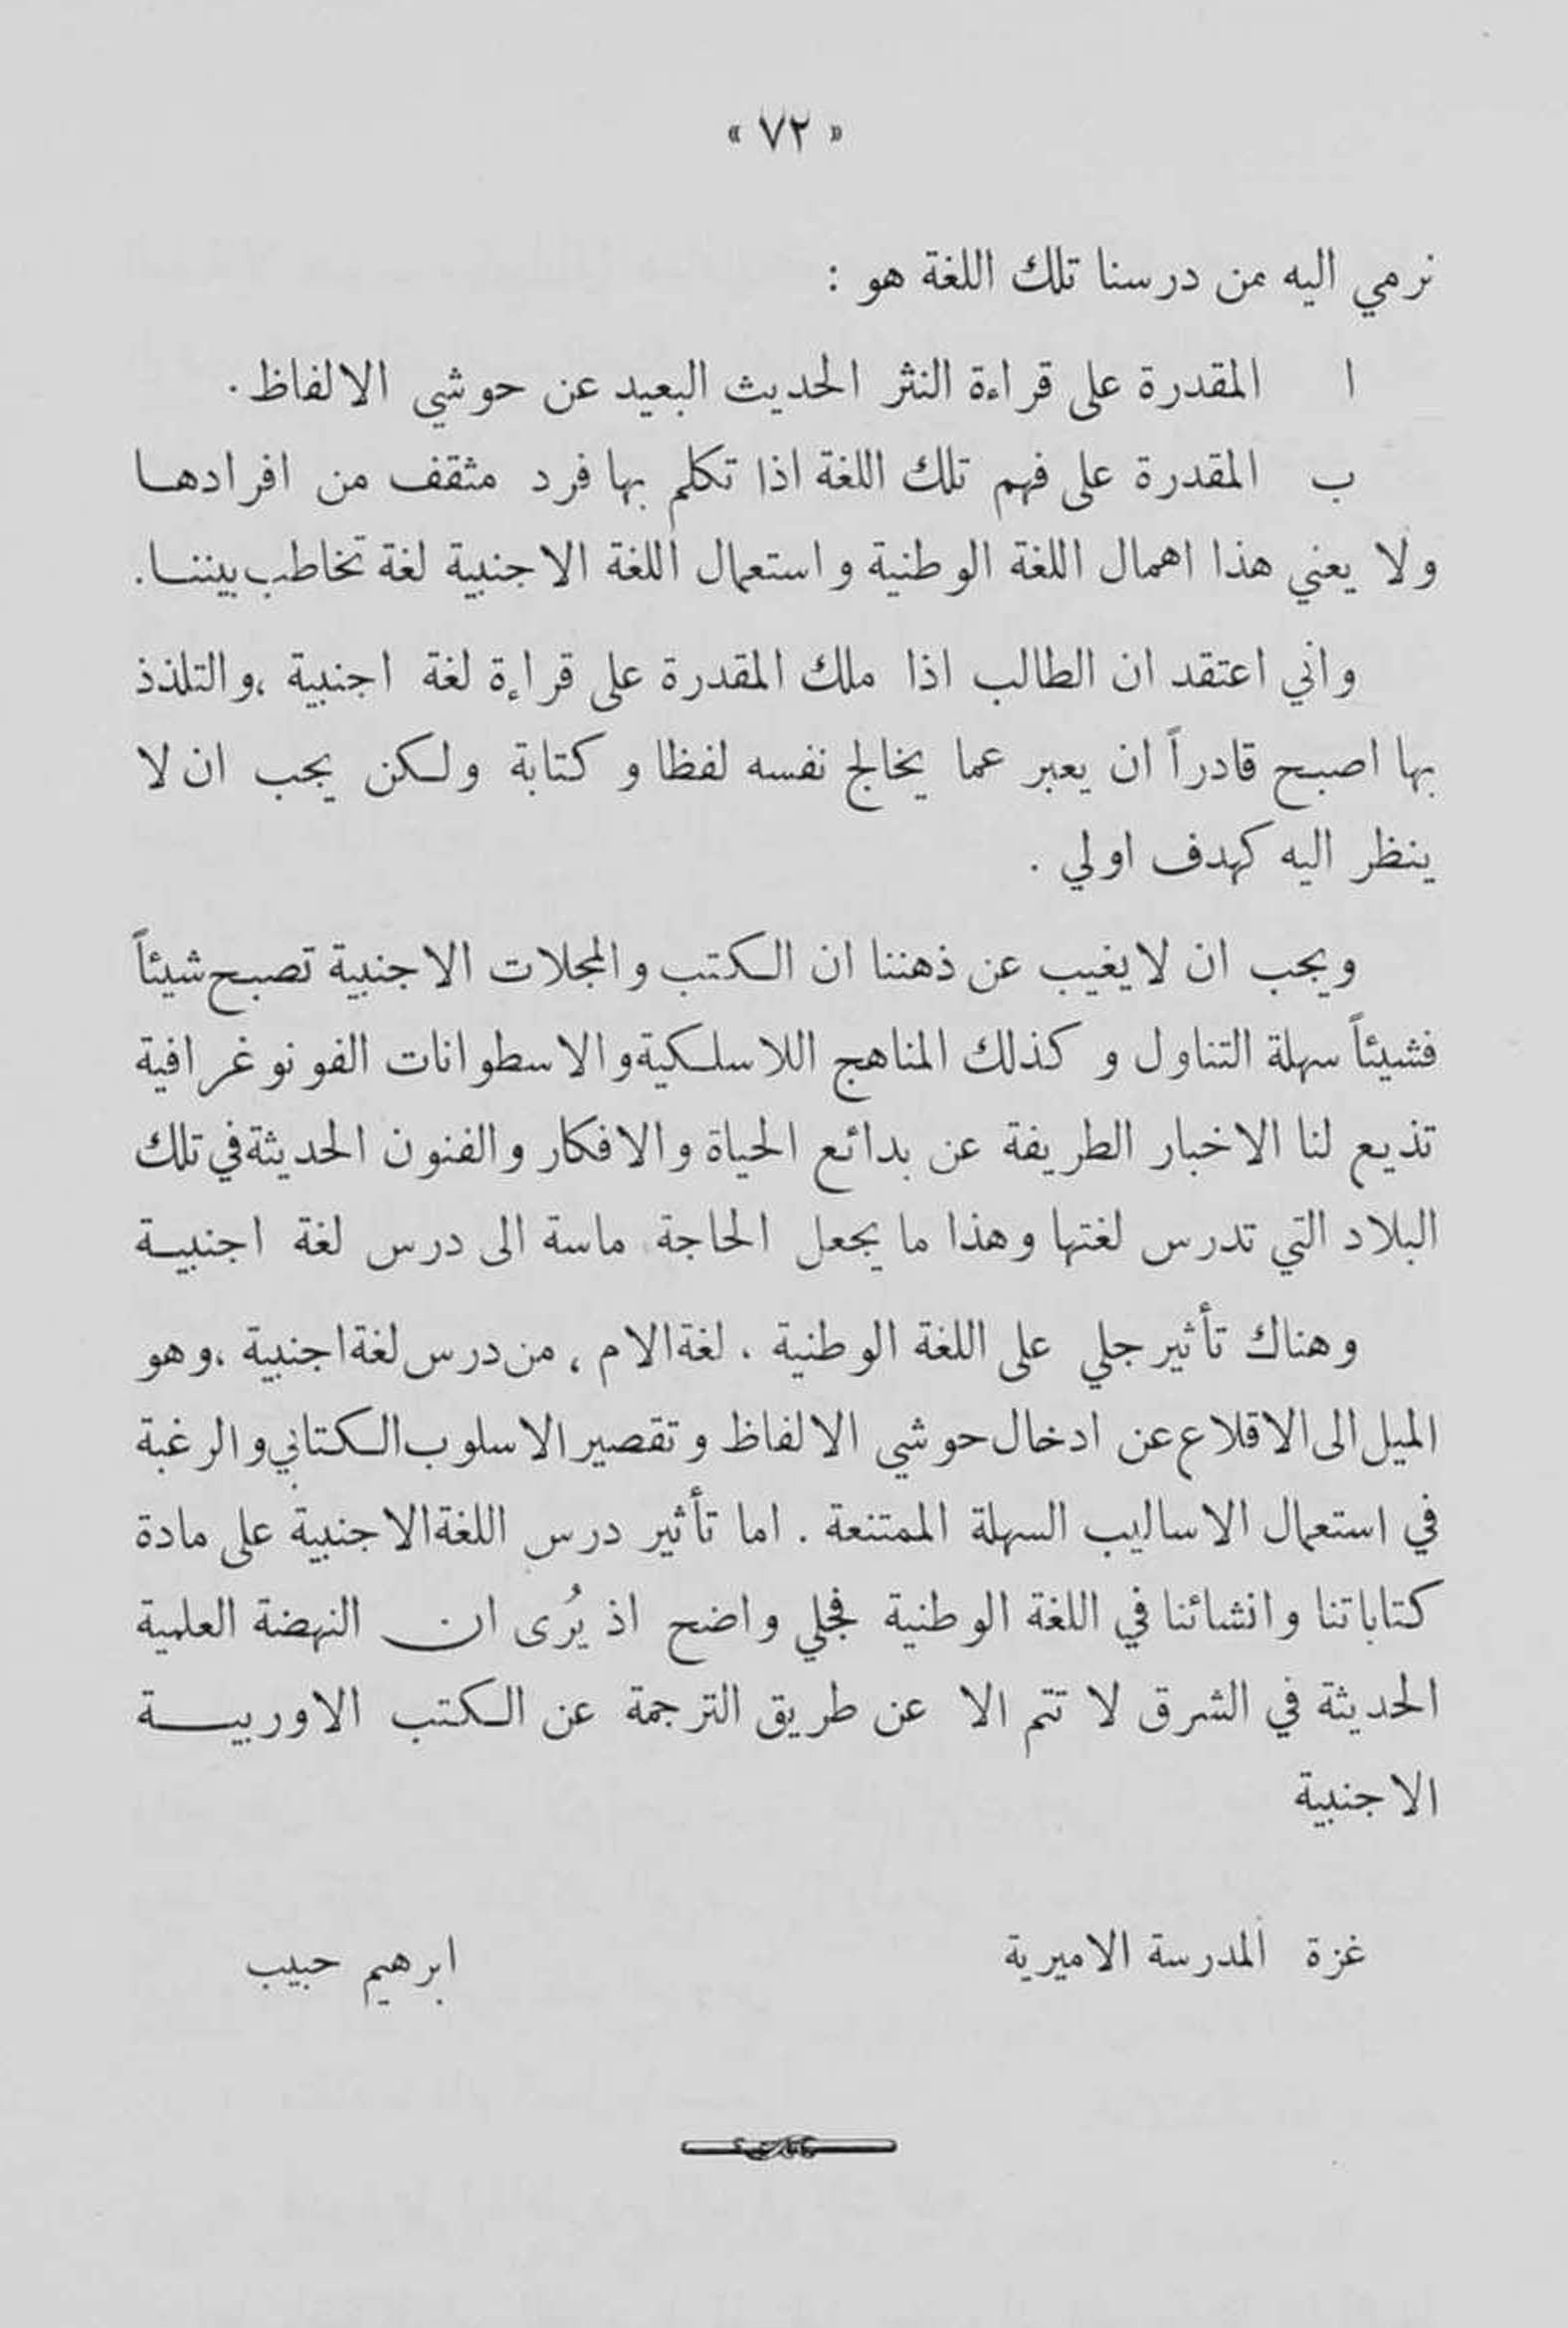 « ٧٢ »
نرمي اليه من درسنا تلك اللغة هو :
ا المقدرة على قراءة النثر الحديث البعيد عن حوشي الالفاظ .
ب المقدرة على فهم تلك اللغة اذا تكلم بها فرد مثقف من افرادها
ولا يعني هذا اهمال اللغة الوطنية واستعمال اللغة الاجنبية لغة تخاطب بيننا .
واني اعتقد ان الطالب اذا ملك المقدرة على قراءة لغة اجنبية ، والتلذذ
بها اصبح قادراً ان يعبر عما يخالج نفسه لفظا وكتابة ولكن يجب ان لا
ينظر اليه كهدف اولي .
ويجب ان لا يغيب عن ذهننا ان الكتب والمجلات الاجنبية تصبح شيئاً
فشيئاً سهلة التناول وكذلك المناهج اللاسلكية والاسطوانات الفونوغرافية
تذيع لنا الاخبار الطريفة عن بدائع الحياة والافكار والفنون الحديثة في تلك
البلاد التي تدرس لغتها وهذا ما يجعل الحاجة ماسة الى درس لغة اجنبية
وهناك تأثير جلي على اللغة الوطنية ، لغة الام ، من درس لغة اجنبية ، وهو
الميل الى الاقلاع عن ادخال حوشي الالفاظ وتقصير الاسلوب الكتابي والرغبة
في استعمال الاساليب السهلة الممتنعة . اما تأثير درس اللغة الاجنبية على مادة
كتاباتنا وانشائنا في اللغة الوطنية فجلي واضح اذ يُرى ان النهضة العلمية
الحديثة في الشرق لا تتم الا عن طريق الترجمة عن الكتب الاوربية
الاجنبية
غزة المدرسة الاميرية ابرهيم حبيب